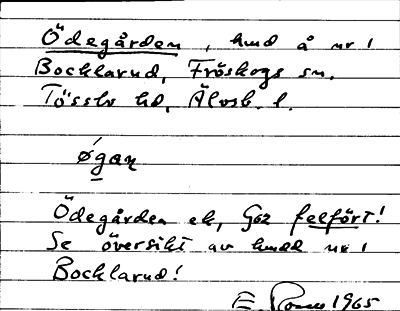 Ödegården, hmd å nr 1
Bocklarud, Fröskogs sn.
Tössbo hd, Älvsb. l.
ǿgaɳ
Ödegården ek, G02 felfört!
Se översikt av hmdd nr 1
Bocklarud!
E. 1965